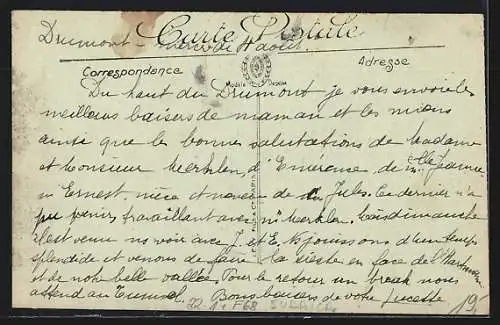 Carte Postale
Drumont - Mercredi 4 août
Correspondance
Adresse
Modèle Déposé
Du haut du Drumont je vous envoie les
meilleurs baisers de maman et les miens
ainsi que les bonnes salutations de Madame
et Monsieur Merklen, d'Emérance, de Mlle Jeanne,
Ernest, nièce et neveu de Jules. Ce dernier n'a
pu venir, travaillant avec Mr Merklen. Mais dimanche
il est venu ns voir avec J. et E. Ns jouissons d'un temps
splendide et venons de faire la sieste en face de l'Hartmann
et de notre belle vallée. Pour le retour un break nous
attend au Bons baisers de votre Lucette
22 F68 19,